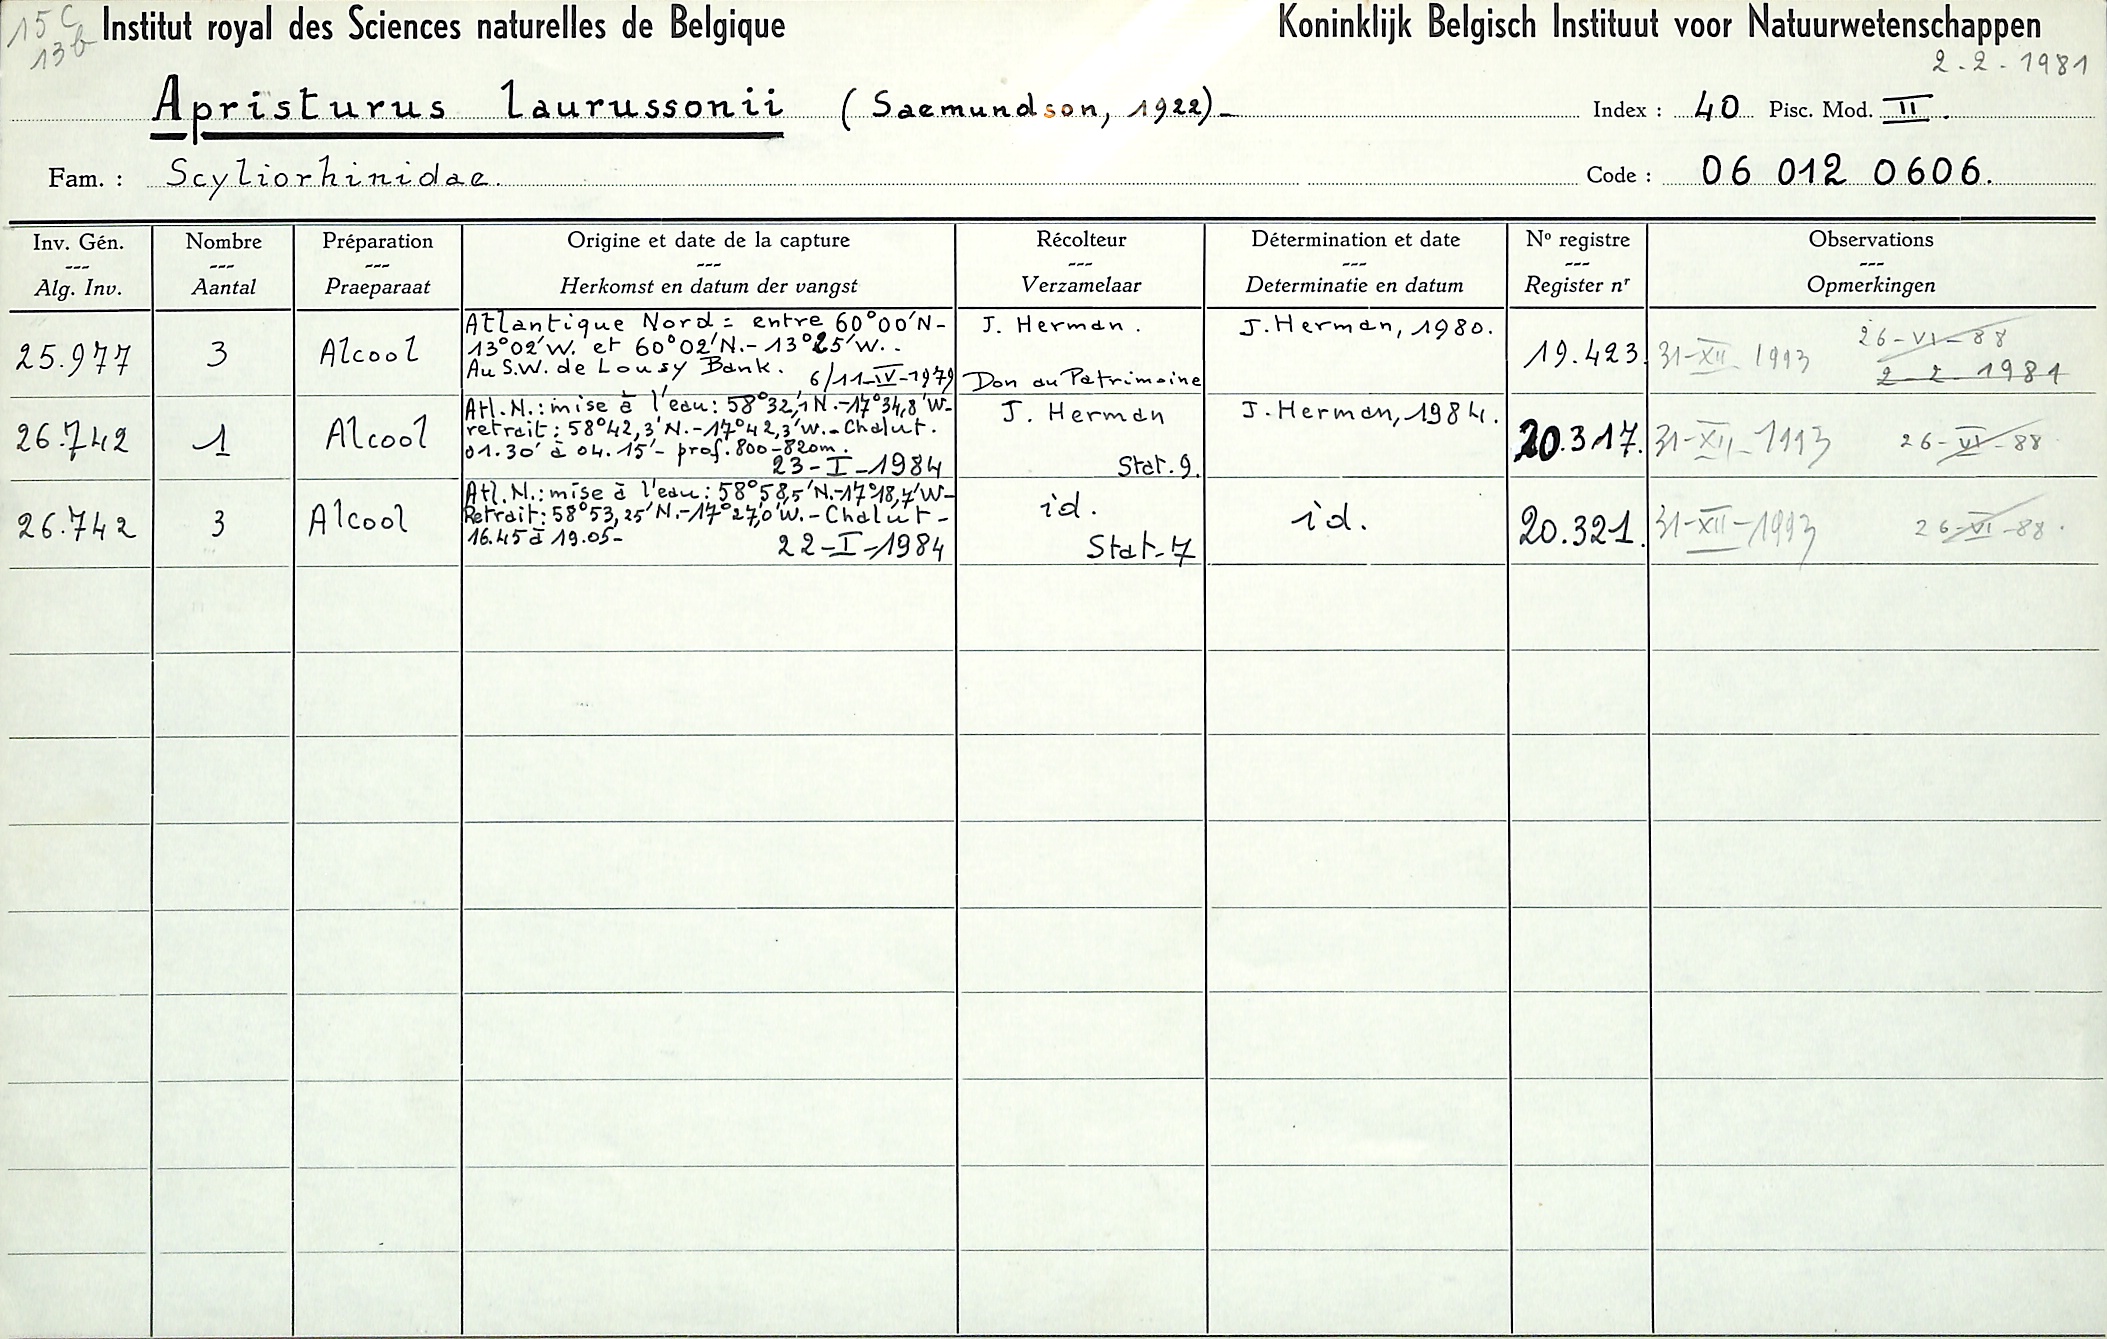 15 C
13 b
Institut royal des Sciences naturelles de Belgique
Koninklijk Belgisch Instituut voor Natuurwetenschappen
2.2.1981
Apristurus laurussonii (Saemundson, 1922)-
Index : 40 Pisc. Mod. II.
Fam. : Scyliorhinidae.
Code : 06 012 0606.
Inv. Gén.
---
Alg. Inv.
Nombre
---
Aantal
Préparation
---
Praeparaat
Origine et date de la capture
---
Herkomst en datum der vangst
Récolteur
---
Verzamelaar
Détermination et date
---
Determinatie en datum
No registre
---
Register nr
Observations
---
Opmerkingen
25.977
3
Alcool
Atlantique Nord = entre 60°00'N-
13°02'W. et 60°02'N.- 13°25'W..
Au S.W. de Lousy Bank.
6/11-IV-1979
J. Herman.
Don au Patrimoine
J. Herman, 1980.
19.423.
31-XII-1993
26-VI-88
2-2-1981
26.742
1
Alcool
Atl. N.: mise à l'eau: 58°32,1N.-17°34,8'W-
retrait: 58°42,3'N.-17°42,3'W.- Chalut.
01.30' à 04.15'- prof. 800-820m.
23-I-1984
J. Herman
Stat. 9.
J. Herman, 1984.
20.317.
31-XII-1993
26-VI-88
26.742
3
Alcool
Atl. N.: mise à l'eau: 58°58,5'N.-17°18,7'W-
Retrait: 58°53,25'N.-17°27,0'W.- Chalut-
16.45 à 19.05-
22-I-1984
id.
Stat-7
id.
20.321.
31-XII-1993
26-VI-88.